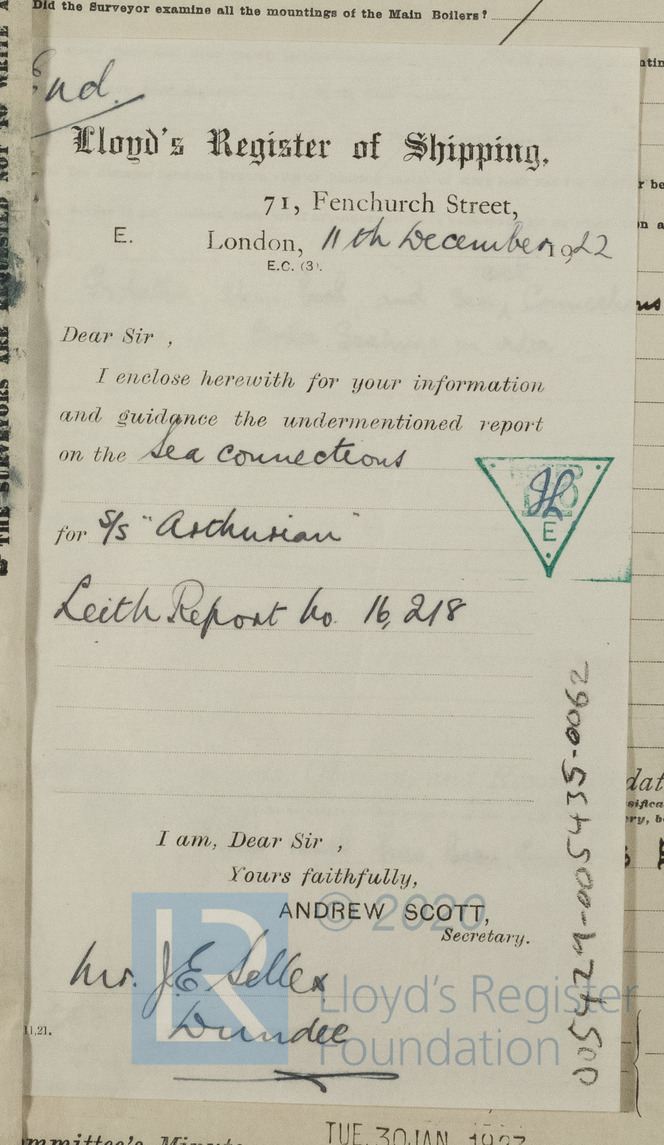 Did the Surveyor examine all the mountings of the Main Boilers?
End.
Lloyd's Register of Shipping,
71, Fenchurch Street,
E. London, 11th December 1922
E.C. (3).
Dear Sir,
I enclose herewith for your information
and guidance the undermentioned report
on the Sea connections
for S/S "Arthurian"
E
Leith Report No. 16,218
I am, Dear Sir,
Yours faithfully,
ANDREW SCOTT,
Secretary.
Mr. J.E. Sellex
Dundee
11,21.
005429-005435-0062
LR
© 2020
Lloyd's Register
Foundation
THE SURVEYORS ARE REQUESTED NOT TO WRITE A
TUE. 30 JAN 1923